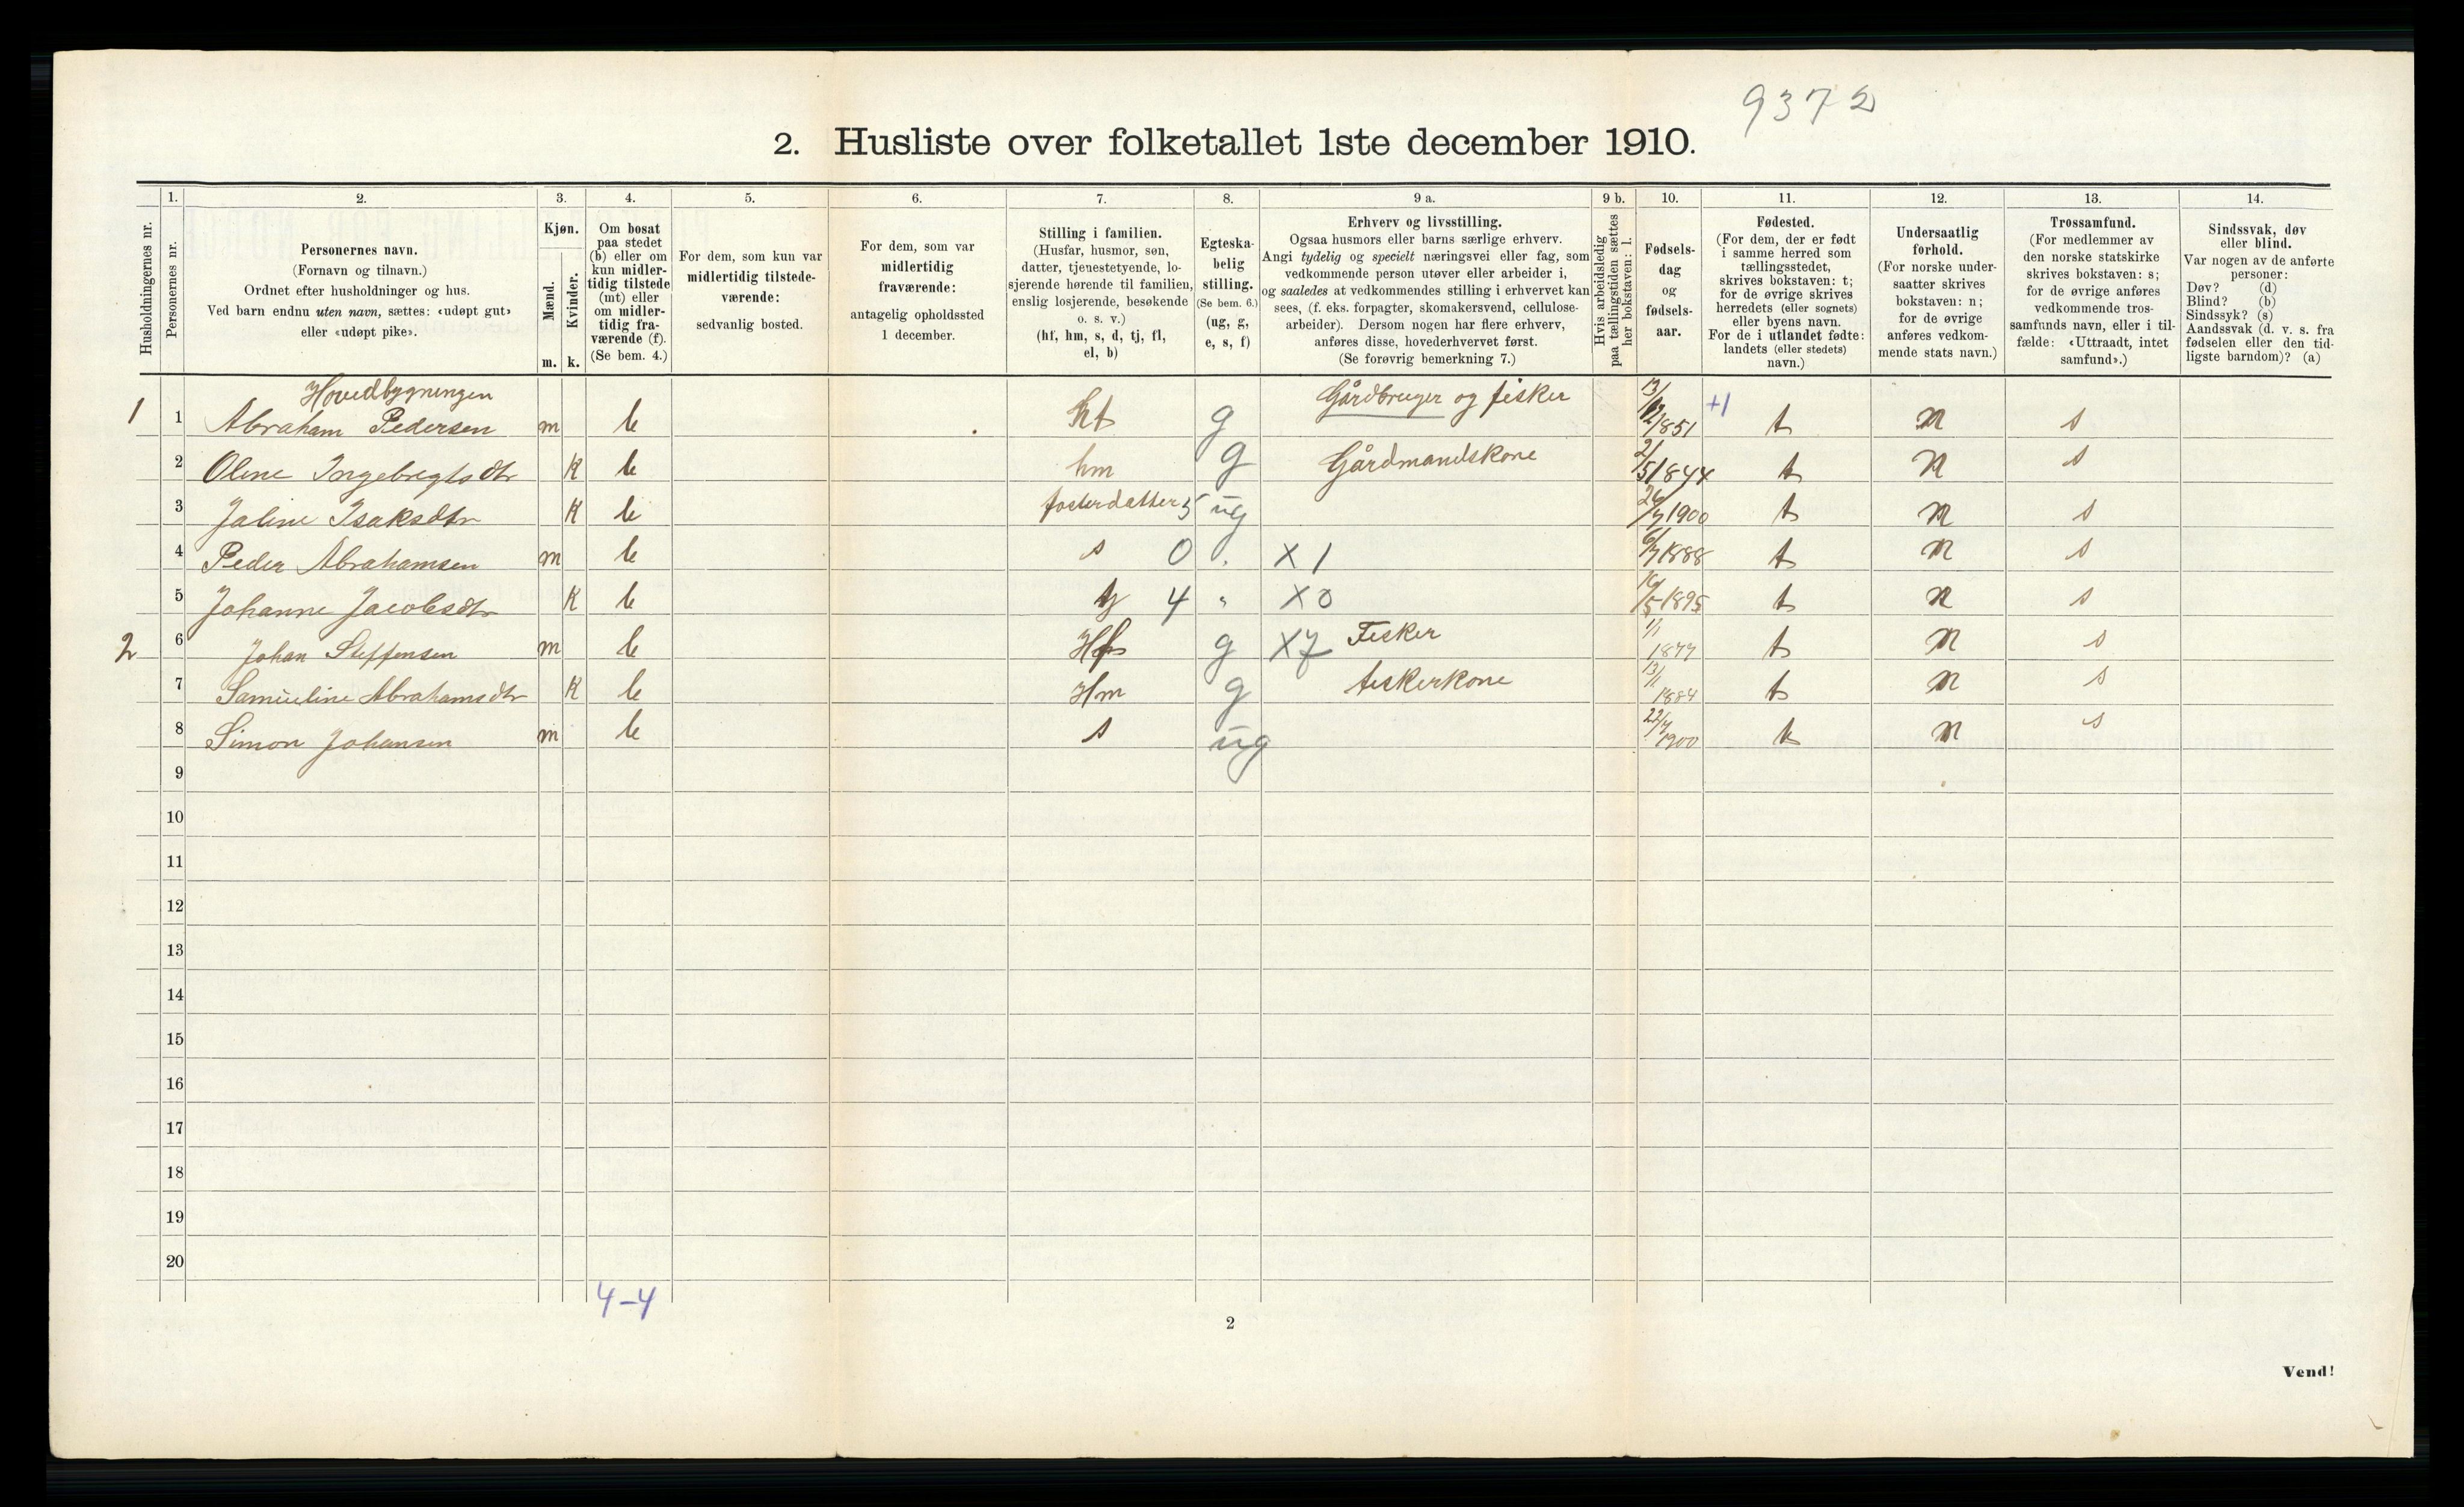 9372
2. Husliste over folketallet 1ste december 1910.
Husholdningernes nr.
1.
Personernes nr.
2.
Personernes navn.
(Fornavn og tilnavn.)
Ordnet efter husholdninger og hus.
Ved barn endnu uten navn, sættes: «udøpt gut»
eller «udøpt pike».
3.
Kjøn.
Mænd.
Kvinder.
m. k.
4.
Om bosat
paa stedet
(b) eller om
kun midler-
tidig tilstede
(mt) eller
om midler-
tidig fra-
værende (f).
(Se bem. 4.)
5.
For dem, som kun var
midlertidig tilstede-
værende:
sedvanlig bosted.
6.
For dem, som var
midlertidig
fraværende:
antagelig opholdssted
1 december.
7.
Stilling i familien.
(Husfar, husmor, søn,
datter, tjenestetyende, lo-
sjerende hørende til familien,
enslig losjerende, besøkende
o. s. v.)
(hf, hm, s, d, tj, fl,
el, b)
8.
Egteska-
belig
stilling.
(Se bem. 6.)
(ug, g,
e, s, f)
9 a.
Erhverv og livsstilling.
Ogsaa husmors eller barns særlige erhverv.
Angi tydelig og specielt næringsvei eller fag, som
vedkommende person utøver eller arbeider i,
og saaledes at vedkommendes stilling i erhvervet kan
sees, (f. eks. forpagter, skomakersvend, cellulose-
arbeider). Dersom nogen har flere erhverv,
anføres disse, hovederhvervet først.
(Se forøvrig bemerkning 7.)
9 b.
Hvis arbeidsledig
paa tællingstiden sættes
her bokstaven: l.
10.
Fødsels-
dag
og
fødsels-
aar.
11.
Fødested.
(For dem, der er født
i samme herred som
tællingsstedet,
skrives bokstaven: t;
for de øvrige skrives
herredets (eller sognets)
eller byens navn.
For de i utlandet fødte:
landets (eller stedets)
navn.)
12.
Undersaatlig
forhold.
(For norske under-
saatter skrives
bokstaven: n;
for de øvrige
anføres vedkom-
mende stats navn.)
13.
Trossamfund.
(For medlemmer av
den norske statskirke
skrives bokstaven: s;
for de øvrige anføres
vedkommende tros-
samfunds navn, eller i til-
fælde: «Uttraadt, intet
samfund».)
14.
Sindssvak, døv
eller blind.
Var nogen av de anførte
personer:
Døv? (d)
Blind? (b)
Sindssyk? (s)
Aandssvak (d. v. s. fra
fødselen eller den tid-
ligste barndom)? (a)
Hovedbygningen
1 1 Abraham Pedersen m b hf g Gårdbruger og fisker 13/12 1851 +1 t n s
2 Oline Ingebregtsdtr k b hm g Gårdmandskone 2/5 1844 t n s
3 Jaline Isaksdtr k b fosterdatter 5 ug 1900 t n s
4 Peder Abrahamsen m b s 0 X 1 1888 t n s
5 Johanne Jacobsdtr k b tj 4 " X 0 16/5 1895 t n s
2 6 Johan Steffensen m b Hf g X7 Fisker 1/1 1877 t n s
7 Samueline Abrahamsdtr k b Hm g fiskerkone 13/1 1884 t n s
8 Simon Johansen m b s ug 1900 t n s
9
10
11
12
13
14
15
16
17
18
19
20
4-4
2
Vend!